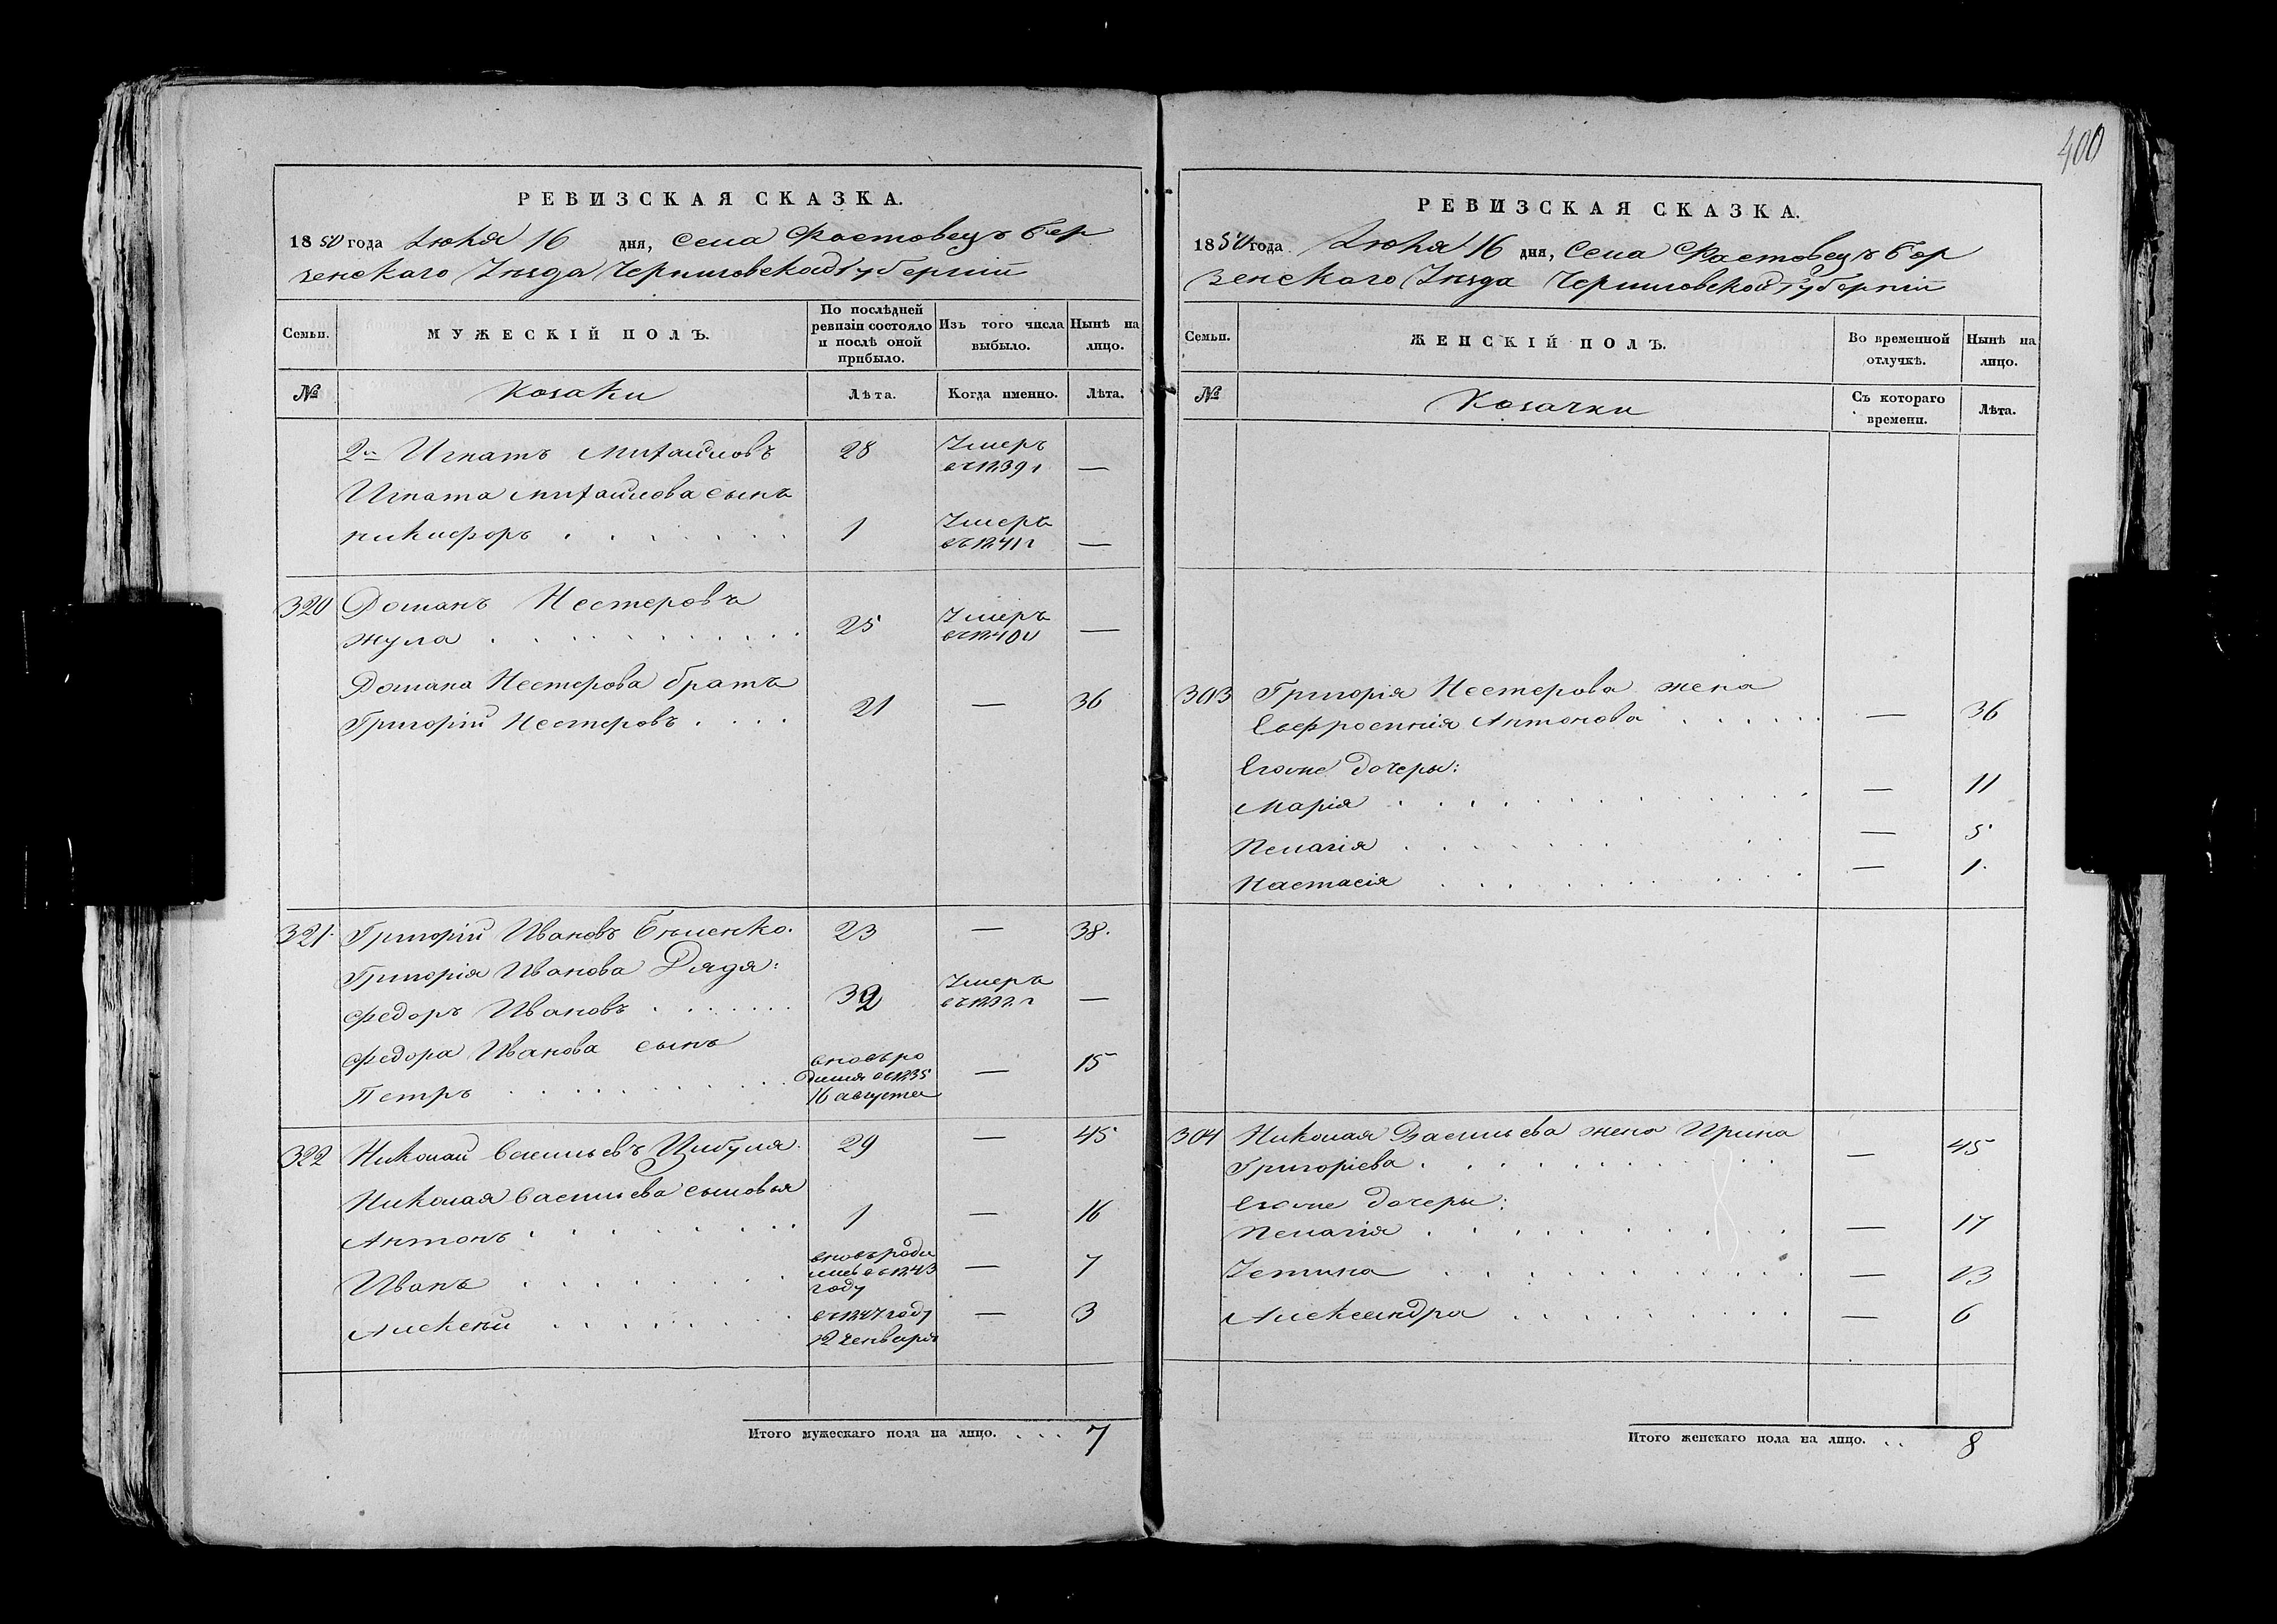 400
РЕВИЗСКАЯ СКАЗКА.
1850 года Июня 16 дня, Села Фастовецъ Бор
зенскаго Уѣзда Черниговской Губерніи
Семьи.
МУЖЕСКІЙ ПОЛЪ.
По послѣдней ревизіи состояло и послѣ оной прибыло.
Изъ того числа выбыло.
Нынѣ на лицо.
№
Козаки
Лѣта.
Когда именно.
Лѣта.
2й Игнатъ Михайловъ 28 Умеръ въ 1839 г —
Игната Михайлова сынъ
Никифоръ 1 Умеръ въ 1841 г —
320 Романъ Нестеровъ
Жула 25 Умеръ въ 1840 г —
Романа Нестерова братъ
Григорій Нестеровъ 21 — 36
321 Григорій Ивановъ Бѣленко. 23 — 38.
Григорія Иванова Дядя:
Федоръ Ивановъ 32 Умеръ —
Федора Иванова сынъ
Петръ вновь родился въ 1835 16 августа — 15
322 Николай Васильевъ Цибуля. 29 — 45
Николая Васильева сыновья
Антонъ 1 — 16
Иванъ вновь роди въ 1843 году — 7
Алексѣй въ 1847 году 12 Генваря — 3
Итого мужескаго пола на лицо. . . . 7
РЕВИЗСКАЯ СКАЗКА.
1850 года Июня 16 дня, Села Фастовецъ Бор
зенскаго Уѣзда Черниговской Губерніи
Семьи.
ЖЕНСКІЙ ПОЛЪ.
Во временной отлучкѣ.
Нынѣ на лицо.
№
Козачки
Съ котораго времени.
Лѣта.
303 Григорія Нестерова жена
Евфросинія Антонова — 36
Егоже дочеры:
Марія — 11
Пелагія — 5
Настасія — 1.
304 Николая Васильева жена Ирина
Григоріева — 45
Егоже дочеры:
Пелагія — 17
Устина — 13
Александра — 6
Итого женскаго пола на лицо. . . 8